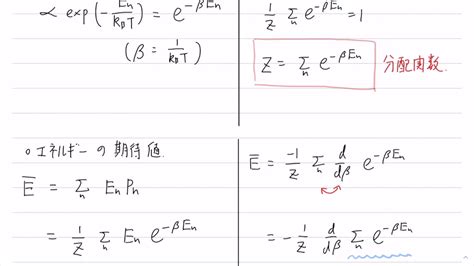 ∝ exp(-En/kBT) = e^-βEn
(β = 1/kBT)
1/Z Σn e^-βEn = 1
Z = Σn e^-βEn 分配関数.
○エネルギーの期待値.
Ē = Σn En Pn
= 1/Z Σn En e^-βEn
Ē = -1/Z Σn d/dβ e^-βEn
= -1/Z d/dβ Σn e^-βEn